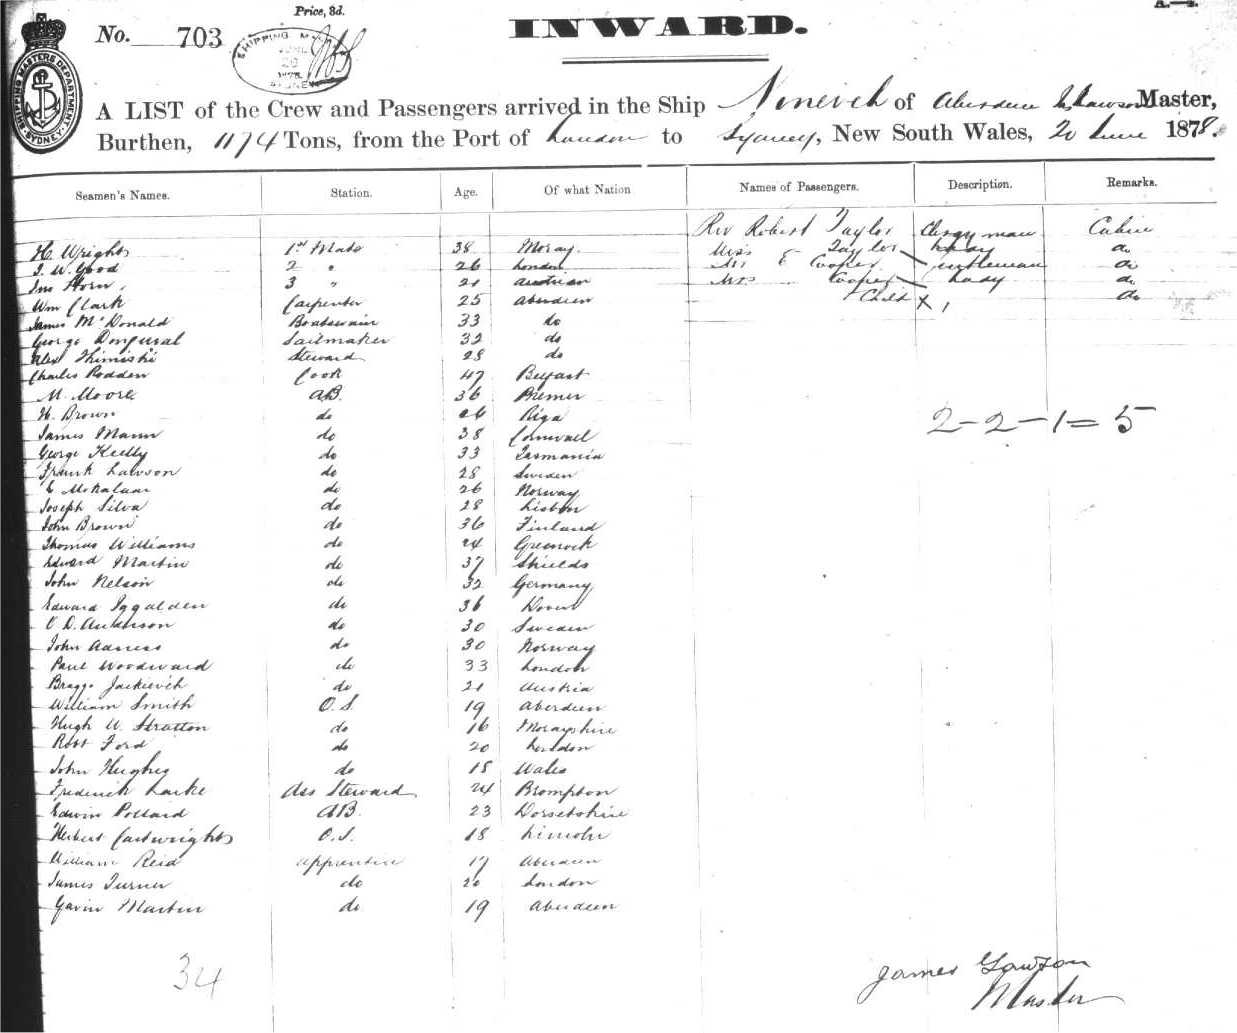 Price, 3d.
A.—4.
No. 703
INWARD.
SHIPPING MASTERS DEPARTMENT. SYDNEY.
A LIST of the Crew and Passengers arrived in the Ship Nineveh of Aberdeen Lawson Master,
Burthen, 1174 Tons, from the Port of London to Sydney, New South Wales, 20 June 1878.
Seamen's Names. Station. Age. Of what Nation Names of Passengers. Description. Remarks.
Rev Robert Taylor Clergyman Cabin
H. Wright 1st Mate 38 Moray Mrs Taylor Lady do
J. W. Good 2 " 26 London Mr E Cooper Gentleman do
Jno Horn 3 " 21 Austrian Mrs " Cooper Lady do
Wm Clark Carpenter 25 Aberdeen Child X 1 do
James McDonald Boatswain 33 do
George Sailmaker 32 do
Alex Steward 28 do
Charles Rodden Cook 47 Belfast
M. Moore AB. 36 Bremen
H. Brown do 26 Riga
James Mann do 38 Cornwall
George Kelly do 33 Tasmania
Frank Lawson do 28 Sweden
E do 26 Norway
Joseph Silva do 28 Lisbon
John Brown do 36 Finland
Thomas Williams do 24 Greenock
Edward Martin do 37 Shields
John Nelson do 32 Germany
Edward Iggulden do 36 Dover
O. D. Anderson do 30 Sweden
John do 30 Norway
Paul Woodward do 33 London
do 21 Austria
William Smith O.S. 19 Aberdeen
Hugh W. Stratton do 16 Morayshire
Robt Ford do 20 London
John Hughes do 18 Wales
Frederick Larke Ass Steward 24 Brompton
Edwin Pollard AB. 23 Dorsetshire
Herbert Cartwright O.S. 18 Lincoln
William Reid Apprentice 17 Aberdeen
James Turner do 20 London
Gavin Martin do 19 Aberdeen
2-2-1=5
34
James Lawson
Master